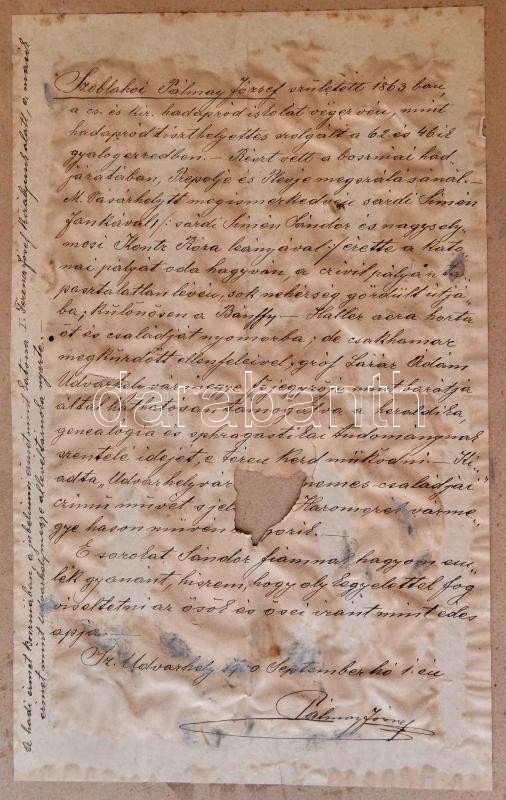 Szeblahói Pálmay József született 1863 ban,
a cs. és kir. hadapród iskolát végezvén, mint
hadapród tiszthelyettes szolgált a 62 és 46ik
gyalogezredben. – Részt vett a boszniai had-
járatában, Prepolje és Plevje megszállásánál. –
M. Vásárhelytt megismerkedvén sárdi Simén
Jankával /: sárdi Simén Sándor és nagysoly-
mosi Koncz Róza leányával :/ érette a kato-
nai pályát oda hagyván, a civil pályán ta-
pasztalatlan levén, sok nehézség gördült útjá-
ba; különösen a Bánffy – Haller aera hozta
őt és családját nyomorba; de csakhamar
megküzdött ellenfeleivel; gróf Lázár Ádám
Udvarhely vármegye főjegyzője mint barátja
által támogatva a heraldika,
genealogia és sphragistikai tudományoknak
szentelé idejét, e téren kezd működni. – Ki-
adta „Udvarhely vár nemes családjai
czimű művét s jele Háromszék várme-
gye hason művén
E sorokat Sándor fiamnak hagyom em-
lék gyanánt, hiszem, hogy oly kegyelettel fog
viseltetni az ősök és ősei iránt mint édes
apja. –
Sz. Udvarhely 1900 September hó 1. én
Pálmay József
A hadi érmet Boszniában, a jubileumi érmet mint katona I. Ferencz József Királyunk alatt, a másik
érmet mint Udvarhelymegye allevéltárnoka nyerte. –
darabanth